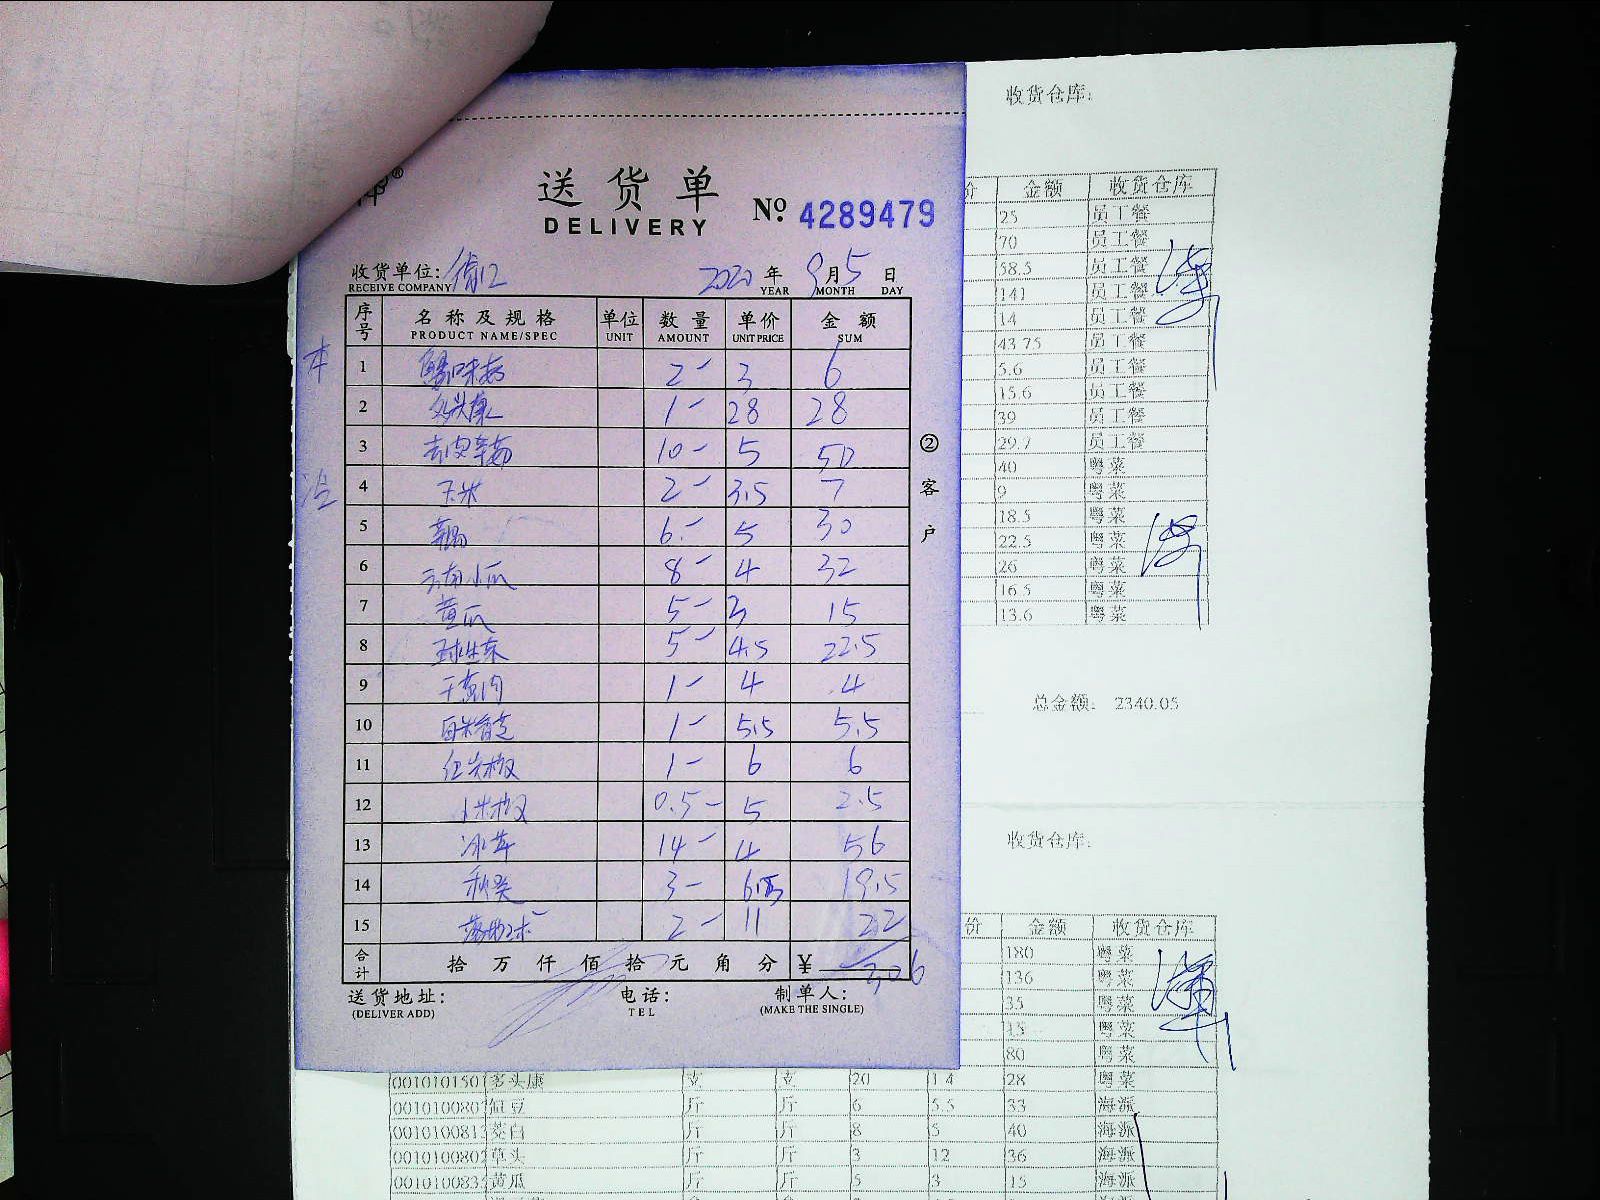 送货单
DELIVERY
№ 4289479
收货单位:
RECEIVE COMPANY
2020 年 9 月 5 日
YEAR MONTH DAY
序号 名称及规格 单位 数量 单价 金额
PRODUCT NAME/SPEC UNIT AMOUNT UNIT PRICE SUM
1 蟹味菇 2- 3 6
2 多头康 1- 28 28
3 10- 5 50
4 玉米 2- 3.5 7
5 6- 5 30
6 云南小瓜 8- 4 32
7 黄瓜 5- 3 15
8 球生菜 5- 4.5 22.5
9 干葱肉 1- 4 4
10 1- 5.5 5.5
11 红尖椒 1- 6 6
12 小米椒 0.5- 5 2.5
13 冰草 14- 4 56
14 秋葵 3- 6.5 19.5
15 2- 11 22
合计 拾 万 仟 佰 拾 元 角 分 ¥ 306
送货地址:
(DELIVER ADD)
电话:
TEL
制单人:
(MAKE THE SINGLE)
②客户
收货仓库:
价 金额 收货仓库
25 员工餐
70 员工餐
58.5 员工餐
141 员工餐
14 员工餐
43.75 员工餐
5.6 员工餐
15.6 员工餐
39 员工餐
29.7 员工餐
40 粤菜
9 粤菜
18.5 粤菜
22.5 粤菜
26 粤菜
16.5 粤菜
13.6 粤菜
总金额: 2340.05
收货仓库:
价 金额 收货仓库
180 粤菜
136 粤菜
35 粤菜
粤菜
80 粤菜
001010150 多头康 支 支 20 1.4 28 粤菜
001010080 豇豆 斤 斤 6 5.5 33 海派
001010081 茭白 斤 斤 8 5 40 海派
001010080 草头 斤 斤 3 12 36 海派
001010083 黄瓜 斤 斤 5 3 15 海派